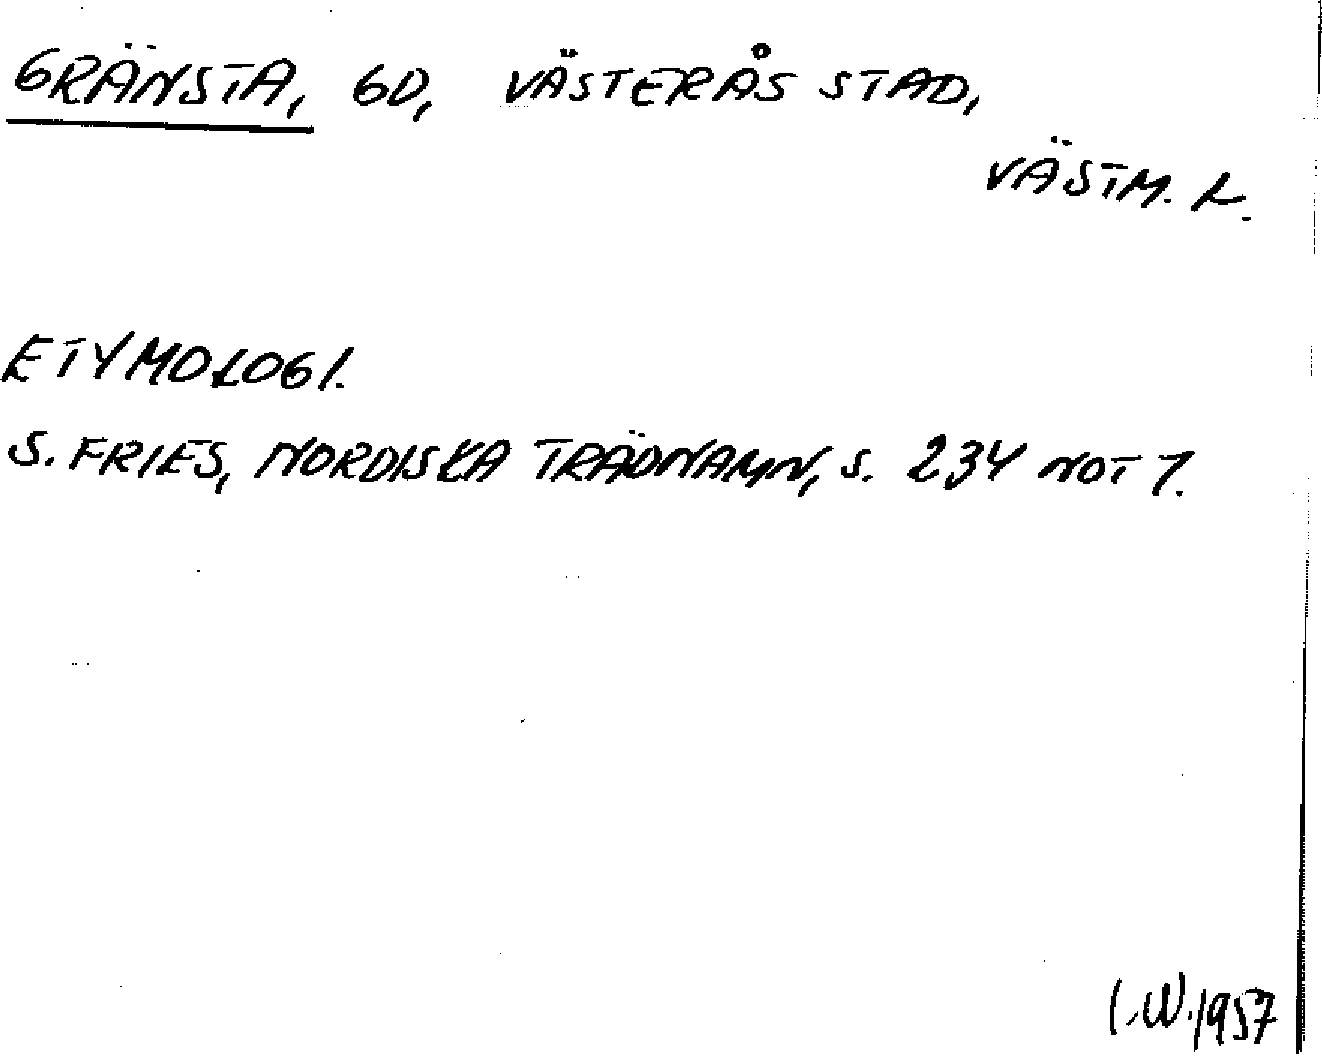 GRÄNSTA, GD, VÄSTERÅS STAD,
VÄSTM. L.
ETYMOLOGI.
S. FRIES, NORDISKA TRÄDNAMN, S. 234 NOT 1.
I.W. 1957